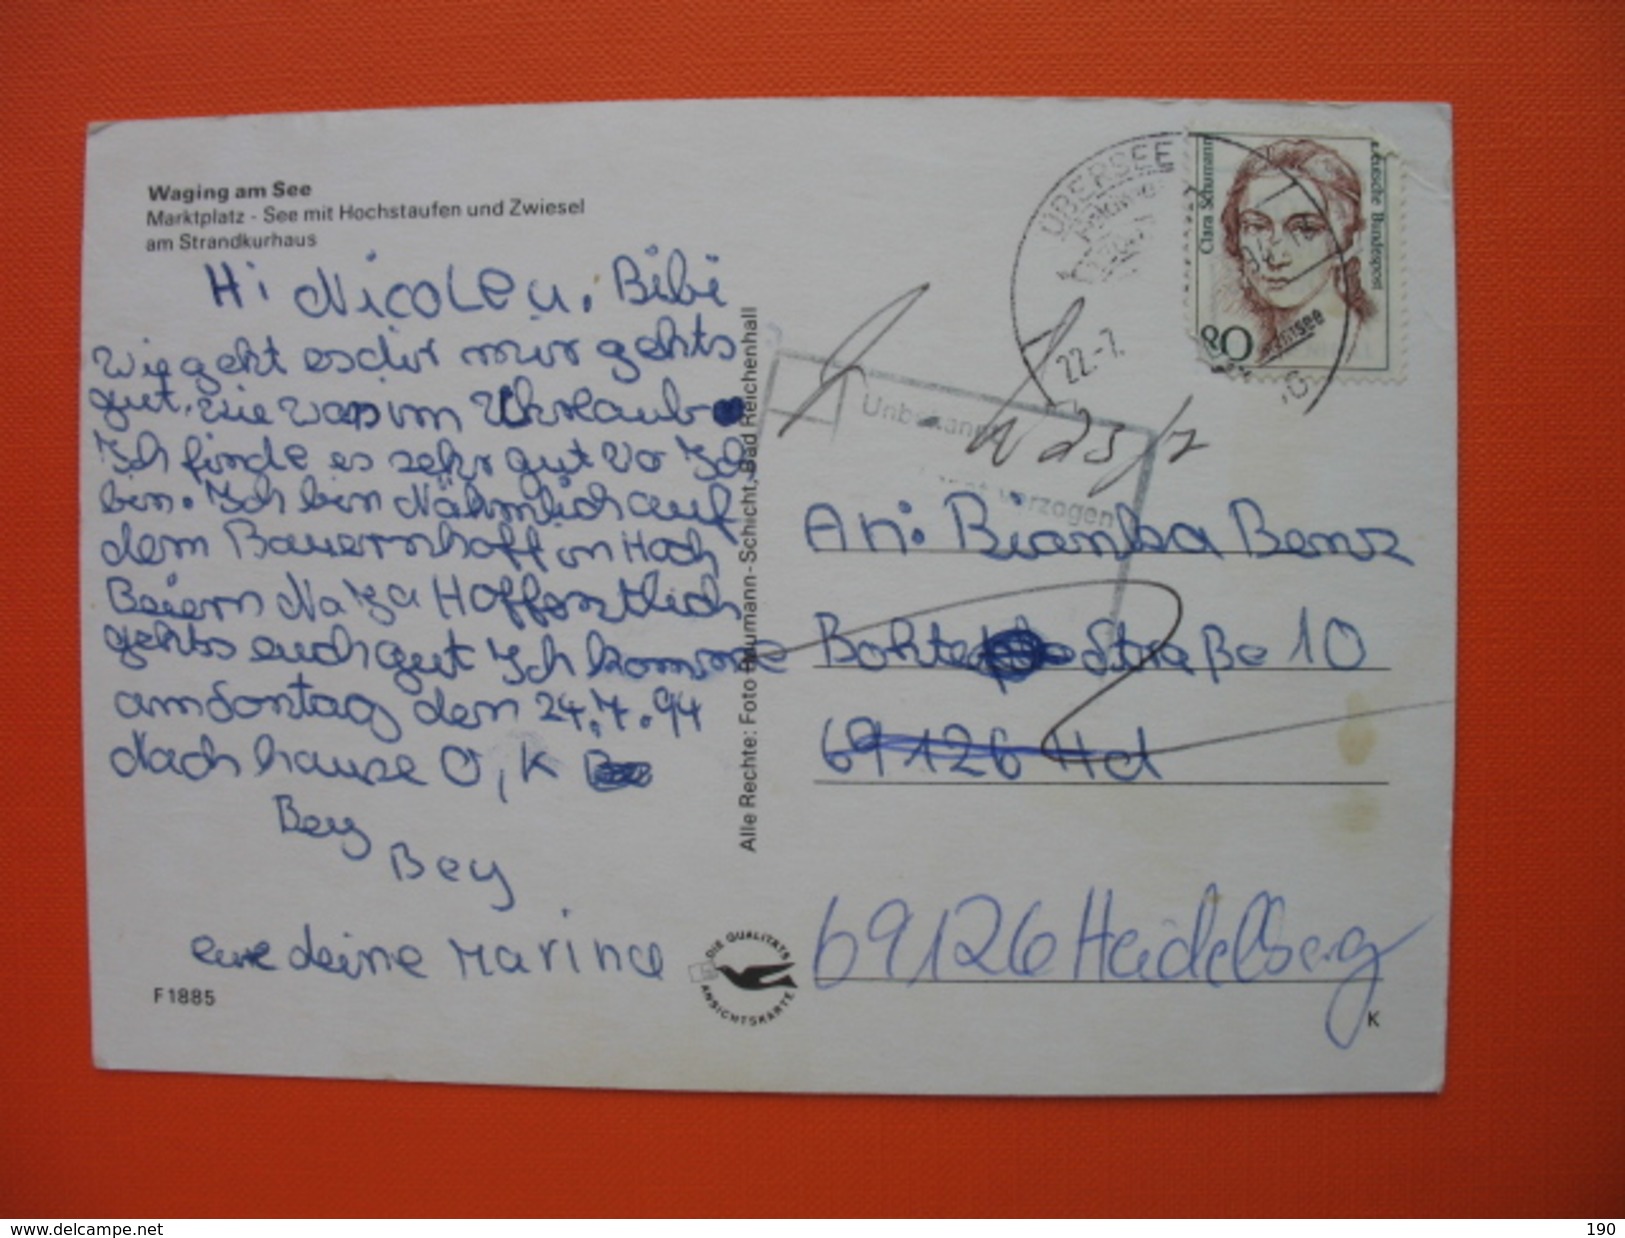 Waging am See
Marktplatz - See mit Hochstaufen und Zwiesel
am Strandkurhaus
Hi Nicole u. Bibi
Wie geht es dir mir gehts
gut. wie war im Uhrlaub
Ich finde es sehr gut vo Ich
bin. Ich bin Nähmlich auf
dem Bauernhoff in Hoch
Beiern Na Ja Hoffentlich
gehts euch gut Ich komme
am Sontag den 24.7.94
nach hause O, K
Bey
Bey
eure deine Marina
F 1885
Alle Rechte: Foto Baumann-Schicht, Bad Reichenhall
DIE QUALITÄTS
ANSICHTSKARTE
ÜBERSEE
22.-7.
Clara Schumann
Deutsche Bundespost
80
Unbekannt
verzogen
An: Bianka Benz
Straße 10
69126 Hd
69126 Heidelberg
K
www.delcampe.net
www.delcampe.net
190